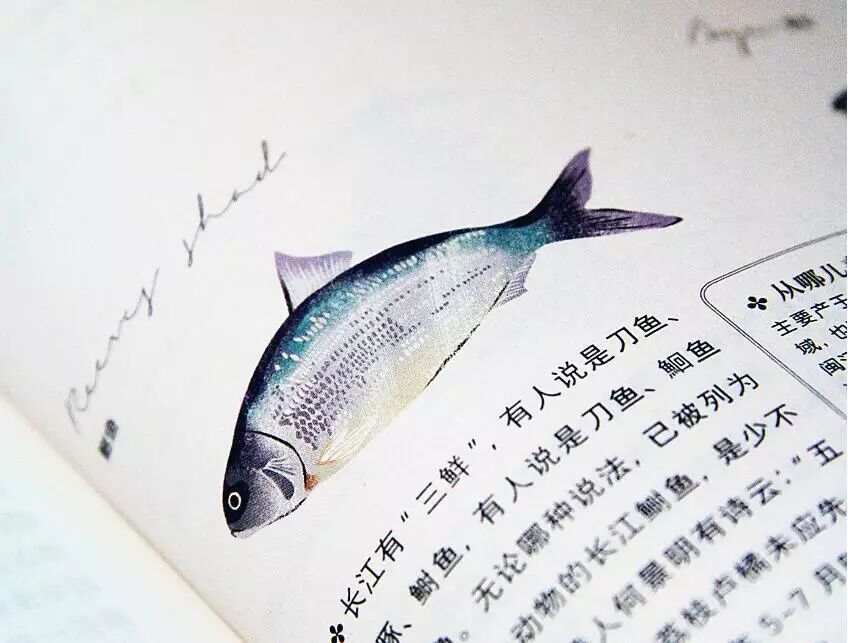 Reeves shad
鲥鱼
从哪儿
主要产
域，也
闽江
长江有“三鲜”，有人说是刀鱼、
豚、鲥鱼，有人说是刀鱼、鮰鱼
无论哪种说法，已被列为
动物的长江鲥鱼，是少不
人何景明有诗云：“五
枝卢橘未应先
5~7 月